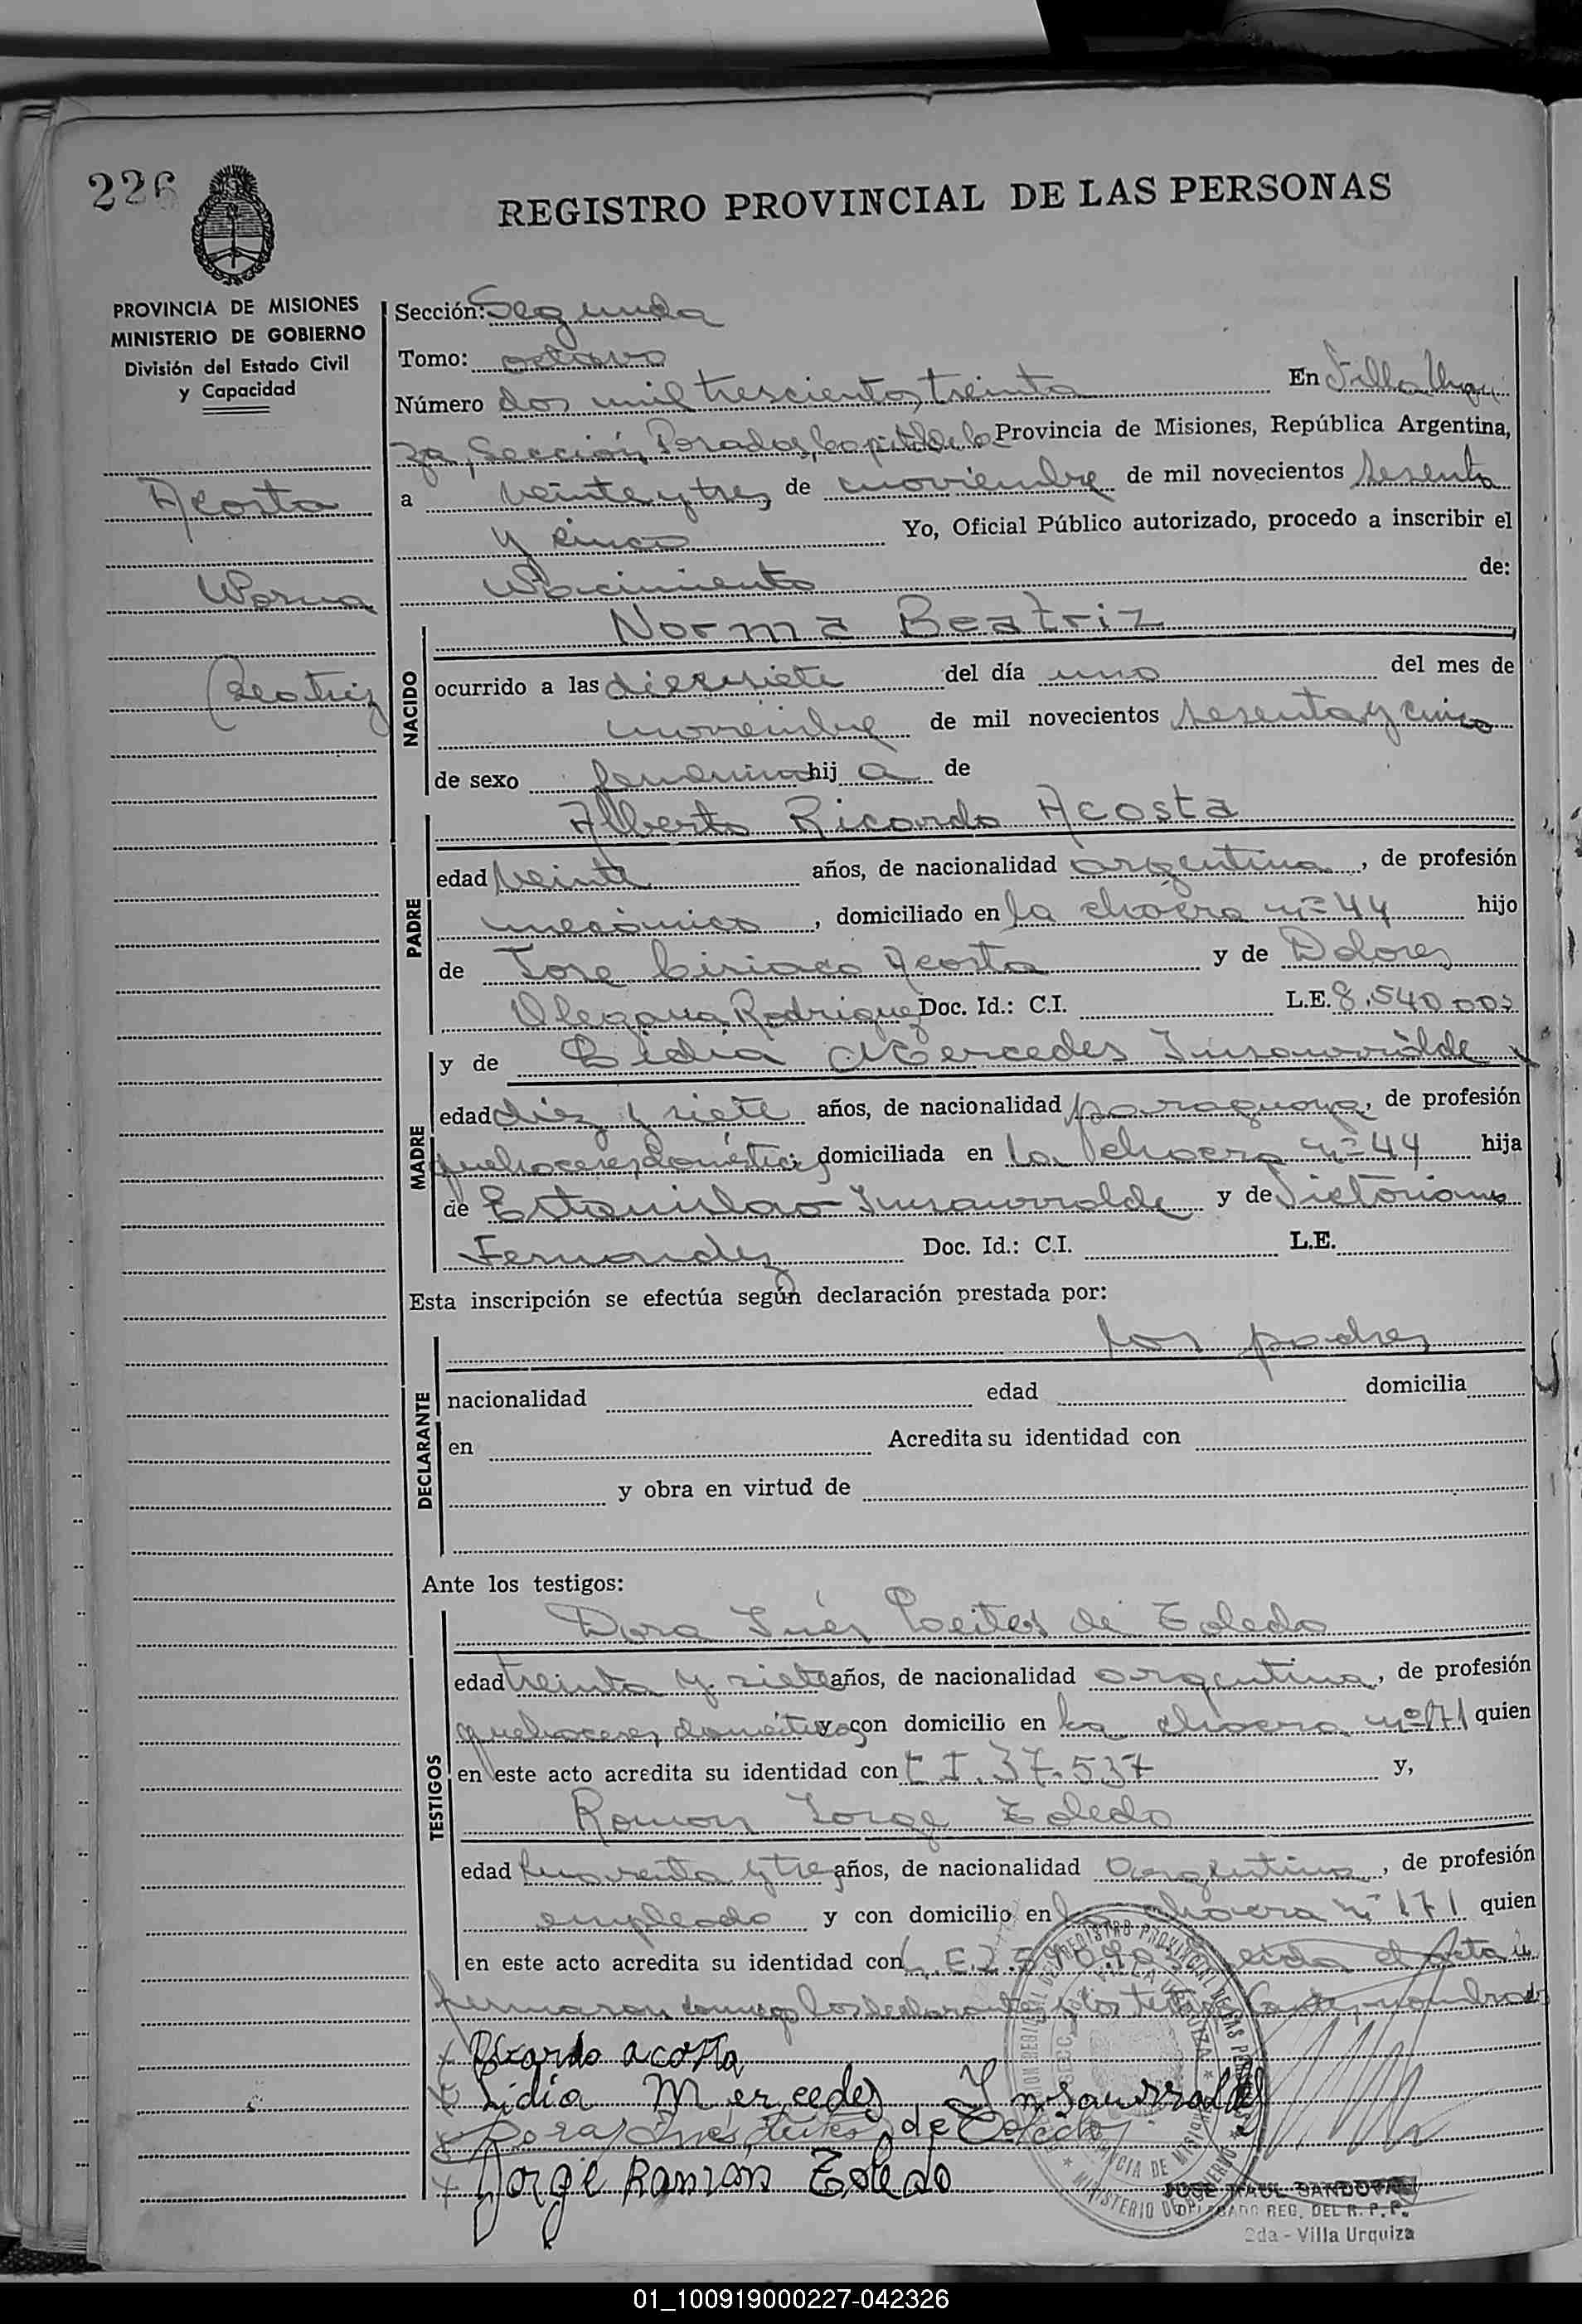 226
REGISTRO PROVINCIAL DE LAS PERSONAS
PROVINCIA DE MISIONES
MINISTERIO DE GOBIERNO
División del Estado Civil
y Capacidad
Acosta
Norma
Beatriz
Sección: Segunda
Tomo: octavo
Número dos mil trescientos treinta En Villa Urqui
za, Sección Posadas, Capital de la Provincia de Misiones, República Argentina,
a veinte y tres de noviembre de mil novecientos sesenta
y cinco Yo, Oficial Público autorizado, procedo a inscribir el
Nacimiento de:
NACIDO
Norma Beatriz
ocurrido a las diesisiete del día uno del mes de
noviembre de mil novecientos sesenta y cinco
de sexo femenino hij a de
PADRE
Alberto Ricardo Acosta
edad veinte años, de nacionalidad argentina, de profesión
mecánico, domiciliado en la chacra nº 44 hijo
de Jose Ciriaco Acosta y de Dolores
Olegaria Rodriguez Doc. Id.: C.I. L.E. 8.540.002
MADRE
y de Lidia Mercedes Insaurralde
edad diez y siete años, de nacionalidad paraguaya, de profesión
quehaceres domésticos domiciliada en la chacra nº 44 hija
de Estanislao Insaurralde y de Victoriana
Fernandez Doc. Id.: C.I. L.E.
Esta inscripción se efectúa según declaración prestada por:
DECLARANTE
los padres
nacionalidad edad domicilia
en Acredita su identidad con
y obra en virtud de
Ante los testigos:
TESTIGOS
Dora Inés Leites de Toledo
edad treinta y siete años, de nacionalidad argentina, de profesión
quehaceres domésticos y con domicilio en la chacra nº 171 quien
en este acto acredita su identidad con C.I. 37.537 y,
Ramon Jorge Toledo
edad cuarenta y tres años, de nacionalidad argentina, de profesión
empleado y con domicilio en la chacra nº 171 quien
en este acto acredita su identidad con L.E. Leida el acta
firmaron conmigo los declarantes y los testigos nombrados
Ricardo acosta
Lidia Mercedes Insaurralde
Dora Inés Leites de Toledo
Jorge Ramón Toledo
JOSE RAUL SANDOVAL
DELEGADO REG. DEL R. P. P.
2da - Villa Urquiza
01_100919000227-042326